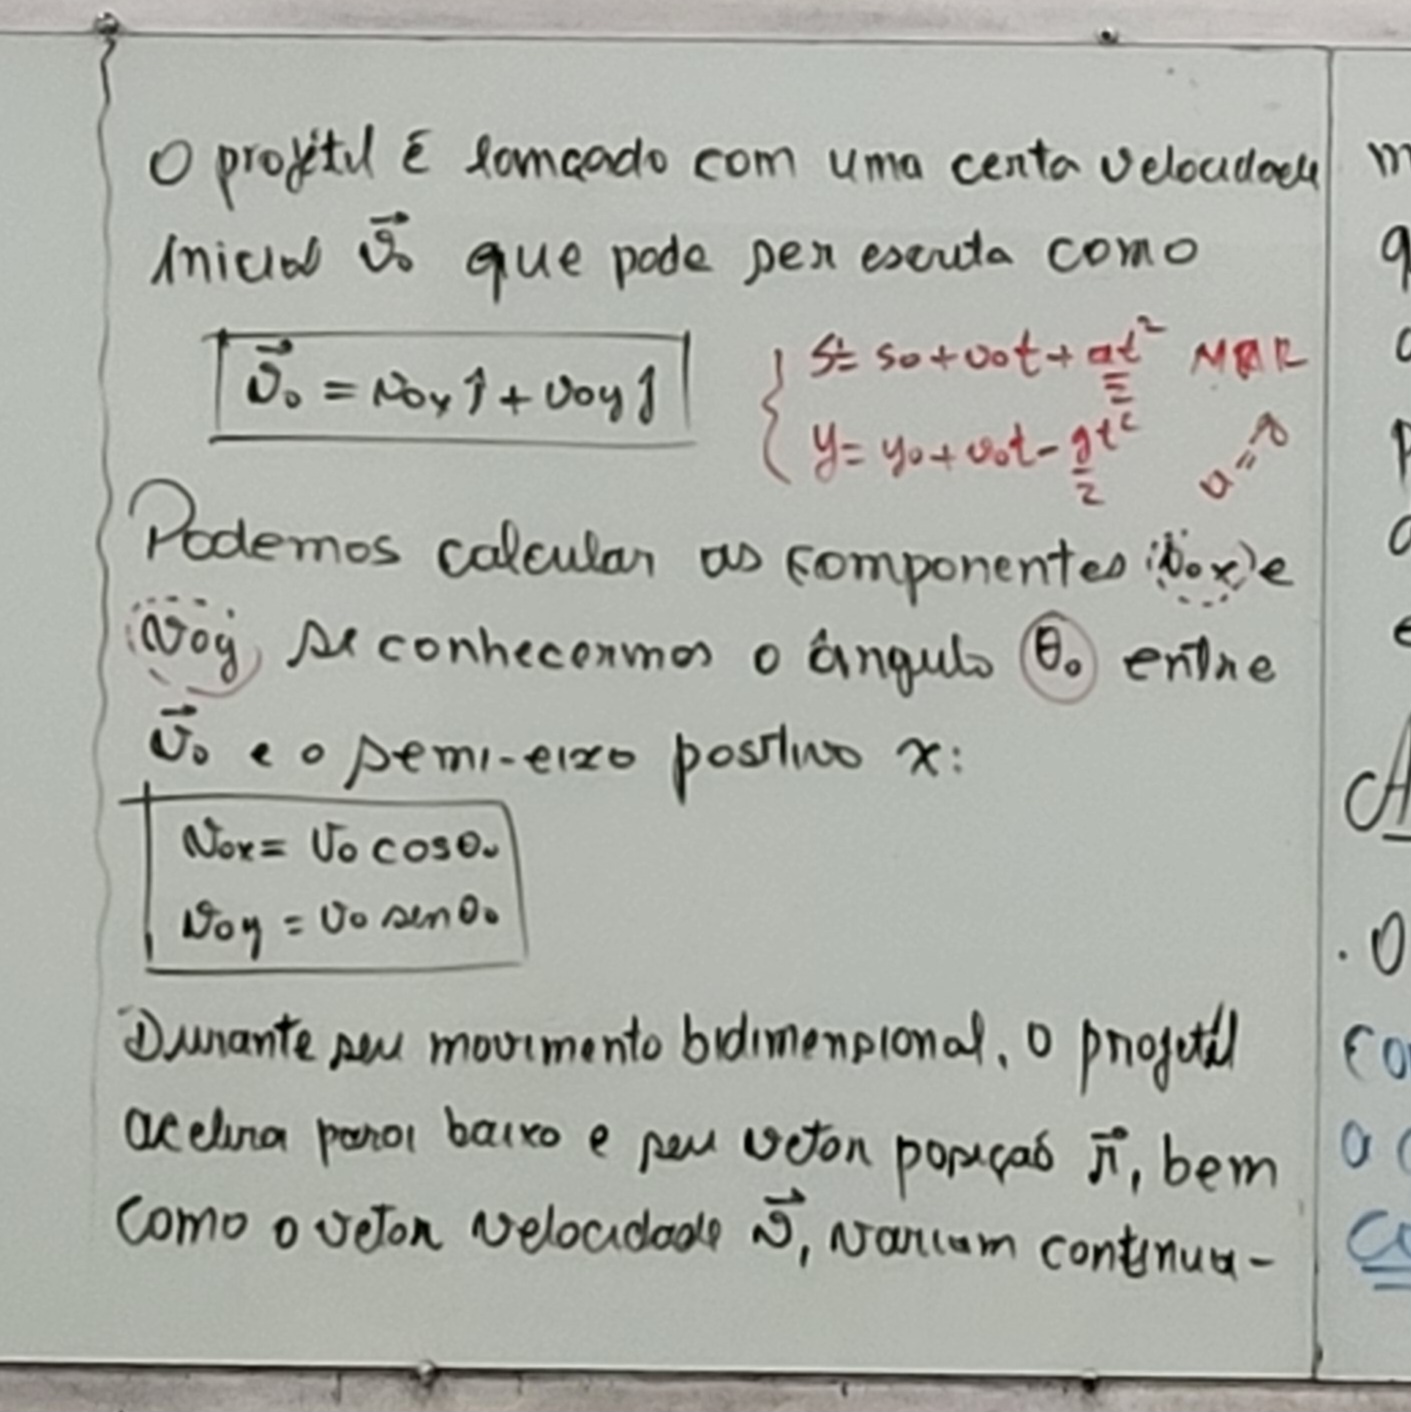 O projétil é lançado com uma certa velocidade
inicial v⃗₀ que pode ser escrita como
v⃗₀ = v₀ₓ î + v₀y ĵ
S = S₀ + v₀t + at²/2 MRR
y = y₀ + v₀t - gt²/2
a = g
Podemos calcular as componentes v₀ₓ e
v₀y se conhecermos o ângulo θ₀ entre
v⃗₀ e o semi-eixo positivo x:
v₀ₓ = v₀ cosθ₀
v₀y = v₀ senθ₀
Durante seu movimento bidimensional, o projétil
acelera para baixo e seu vetor posição r⃗, bem
como o vetor velocidade v⃗, variam continua-